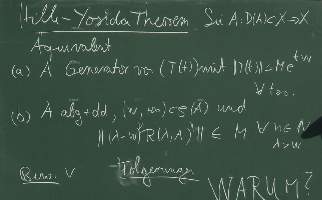 Hille-Yosida Theorem. Sei A: D(A)⊂X→X
Äquivalent
(a) A Generator von (T(t)) mit ||T(t)|| ≤ Me^{tw}
∀ t≥0.
(b) A abg + dd, (w,+∞)⊂ρ(A) und
||(λ-w)^n R(λ,A)^n|| ≤ M ∀ n∈N
λ>w
Bew. V
Folgerungen
WARUM?